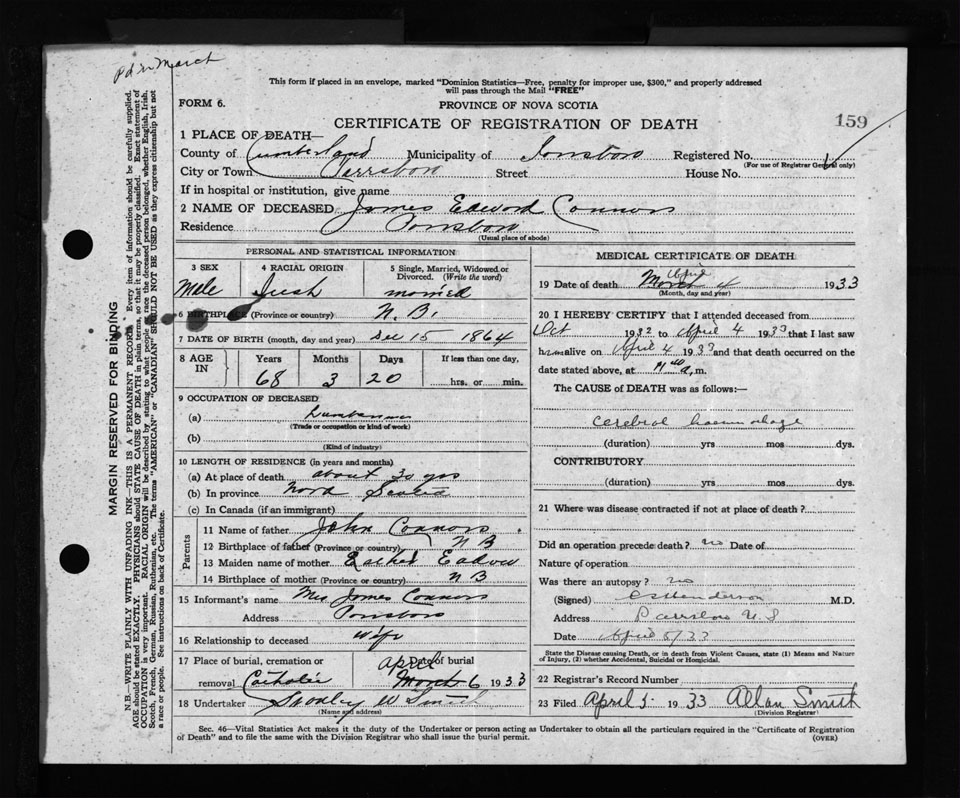 Pd in March
This form if placed in an envelope, marked "Dominion Statistics—Free, penalty for improper use, $300," and properly addressed
will pass through the Mail "FREE"
FORM 6.
PROVINCE OF NOVA SCOTIA
CERTIFICATE OF REGISTRATION OF DEATH
159
1 PLACE OF DEATH—
County of Cumberland Municipality of Parrsboro Registered No.
(For use of Registrar General only)
City or Town Parrsboro Street House No.
If in hospital or institution, give name
2 NAME OF DECEASED James Edward Connors
Residence Parrsboro
(Usual place of abode)
PERSONAL AND STATISTICAL INFORMATION
3 SEX 4 RACIAL ORIGIN 5 Single, Married, Widowed or
Divorced. (Write the word)
Male Irish married
6 BIRTHPLACE (Province or country) N.B.
7 DATE OF BIRTH (month, day and year) Dec 15 1864
8 AGE IN Years Months Days If less than one day,
68 3 20 hrs. or min.
9 OCCUPATION OF DECEASED
(a) Lumberman
(Trade or occupation or kind of work)
(b)
(Kind of industry)
10 LENGTH OF RESIDENCE (in years and months)
(a) At place of death about 30 yrs
(b) In province Nova Scotia
(c) In Canada (if an immigrant)
Parents
11 Name of father John Connors
12 Birthplace of father (Province or country) N B
13 Maiden name of mother Rachel
14 Birthplace of mother (Province or country) N B
15 Informant's name Mrs James Connors
Address Parrsboro
16 Relationship to deceased wife
17 Place of burial, cremation or Date of burial
removal Catholic April March 6 1933
18 Undertaker Stanley W Smith
(Name and address)
MEDICAL CERTIFICATE OF DEATH
19 Date of death March April 4 1933
(Month, day and year)
20 I HEREBY CERTIFY that I attended deceased from
Oct 1932 to April 4 1933 that I last saw
him alive on April 4 1933 and that death occurred on the
date stated above, at a, m.
The CAUSE of DEATH was as follows:—
Cerebral haemorrhage
(duration) yrs mos dys.
CONTRIBUTORY
(duration) yrs mos dys.
21 Where was disease contracted if not at place of death?
Did an operation precede death? no Date of
Nature of operation
Was there an autopsy? no
(Signed) Henderson M.D.
Address Parrsboro N.S
Date April 5/33
State the Disease causing Death, or in death from Violent Causes, state (1) Means and Nature
of Injury, (2) whether Accidental, Suicidal or Homicidal.
22 Registrar's Record Number
23 Filed April 5 1933 Allan Smith
(Division Registrar)
Sec. 46—Vital Statistics Act makes it the duty of the Undertaker or person acting as Undertaker to obtain all the particulars required in the "Certificate of Registration
of Death" and to file the same with the Division Registrar who shall issue the burial permit.
(OVER)
MARGIN RESERVED FOR BINDING
N.B.—WRITE PLAINLY WITH UNFADING INK—THIS IS A PERMANENT RECORD. Every item of information should be carefully supplied.
AGE should be stated EXACTLY. PHYSICIANS should STATE CAUSE OF DEATH in plain terms, so that it may be properly classified. Exact statement of
OCCUPATION is very important. RACIAL ORIGIN will be described by stating to what people or race the deceased person belonged, whether English, Irish,
Scotch, French, German, Russian, Ruthenian, etc. The terms "AMERICAN" or "CANADIAN" SHOULD NOT BE USED as they express citizenship but not
a race or people. See instructions on back of Certificate.